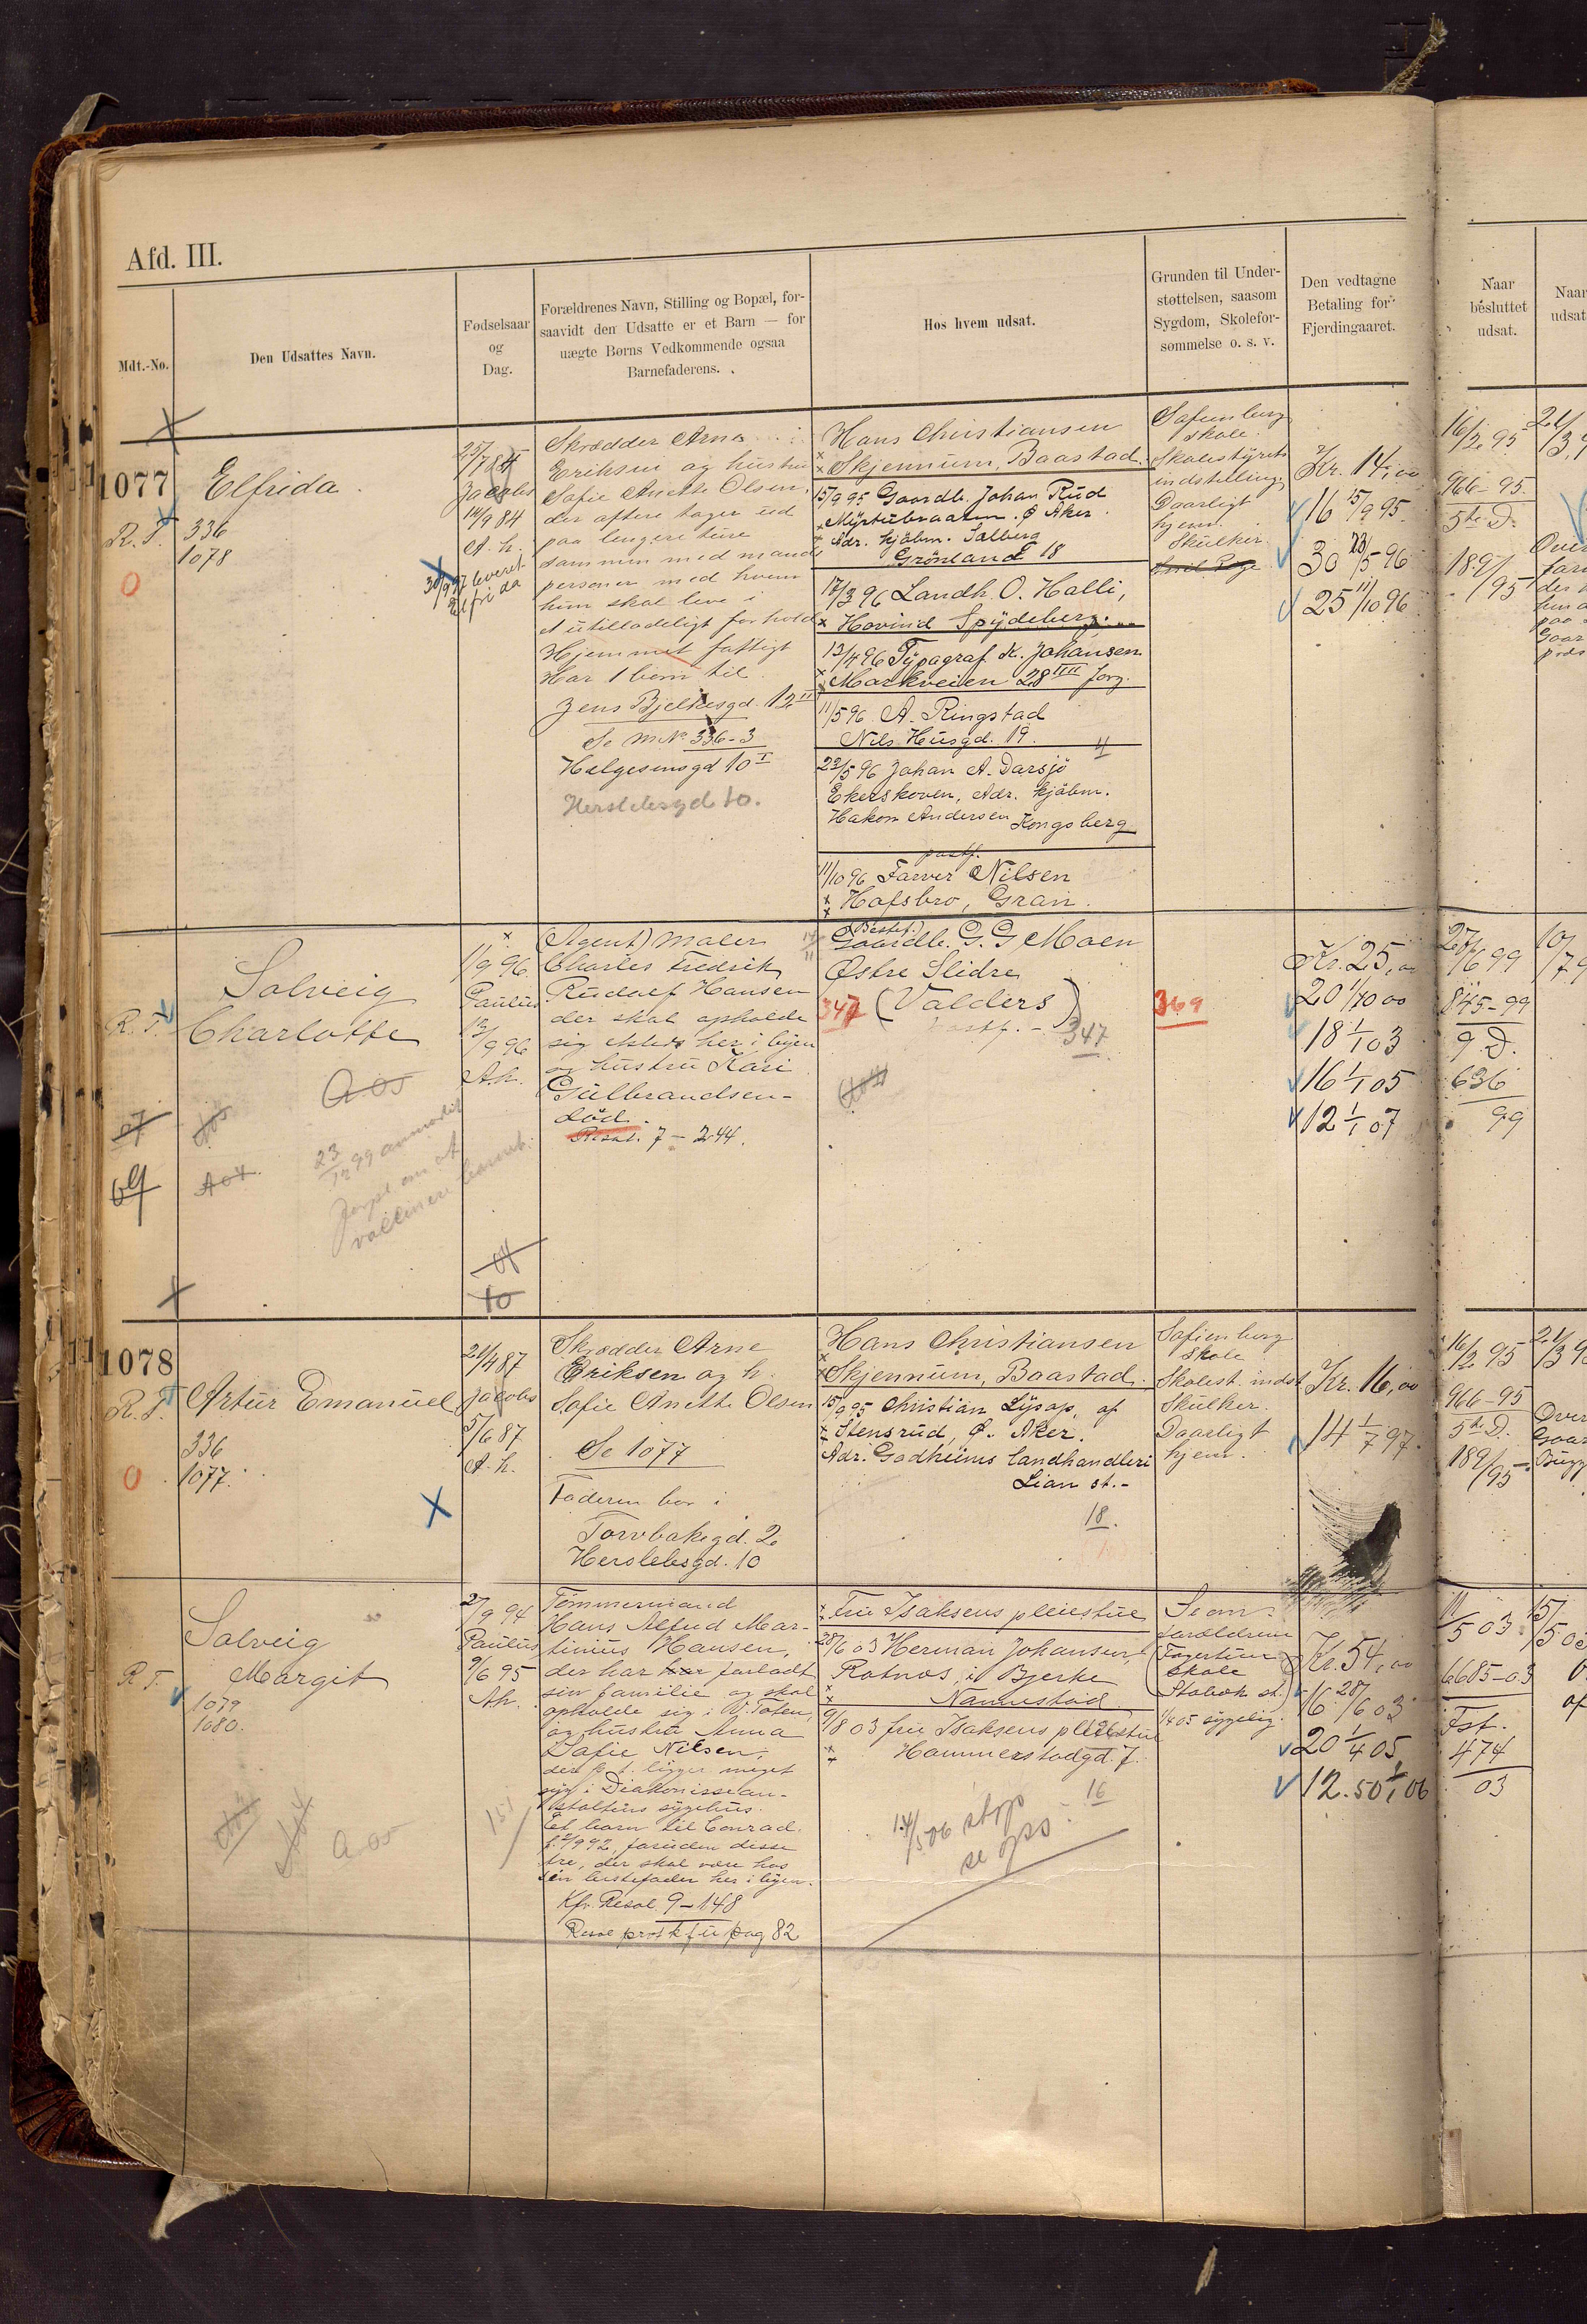 Afd. III.
Mdt.-No.
Den Udsattes Navn.
Fødselsaar
og
Dag.
Forældrenes Navn, Stilling og Bopæl, for-
saavidt den Udsatte er et Barn — for
uægte Børns Vedkommende ogsaa
Barnefaderens.
Hos hvem udsat.
Grunden til Under-
støttelsen, saasom
Sygdom, Skolefor-
sømmelse o. s. v.
Den vedtagne
Betaling for
Fjerdingaaret.
Naar
besluttet
udsat.
Naar
udsat
1077
R. T.
0
Elfrida
336
1078
25/7 84
Jacobs
14/9 84
A. h.
30/9 97 leveret
Elfrida
Skrædder Arne
Eriksen og hustru
Sofie Anette Olsen,
der oftere tager ud
paa lengere ture
sammen med mands
personer med hvem
hun skal leve i
et utilladeligt forhold
Hjemmet fattigt
Har 1 barn til
Jens Bjelkesgd. 12 II
Se M N. 336-3
Helgesensgd 10 I
Herslebsgd 10.
Hans Christiansen
Skjennum, Baastad.
15/9 95 Gaardb. Johan Rud
Myrtebraaten. Ø Aker.
Adr. kjøbm. Solberg
Grønland 18
17/3 96 Landh. O. Halli,
Hovind Spydeberg.
13/4 96 Typograf K. Johansen
Markveien 28 III Forg.
11/5 96 A. Ringstad
Nils Husgd. 19.
4
23/5 96 Johan A. Darsjö
Ekerskoven, Adr. kjøbm.
Hakon Andersen Kongsberg
postf.
11/10 96 Farver Nilsen
Hofsbro, Gran.
Sofienberg
skole.
Skolestyrets
indstilling.
Daarligt
hjem.
Skulker.
Kr. 14,00
16 15/9 95.
30 23/5 96
25 11/10 96
16/2 95
966-95.
5te D.
189/95
21/3 9
Solveig
Charlotte
R. T.
A 05
07
09
A 04
23/12 99 anmodet
om at
vaccinere barnet.
1/9 96.
Paulus
13/9 96
A.h.
04
10
(Agent) maler
Charles Fredrik
Rudolf Hansen
der skal opholde
sig etsteds her i byen
og hustru Kari
Gulbrandsen-
död.
Resol. 7 - 244.
(Bestef.)
Gaardb. G. G Moen
Østre Slidre
347 (Valders)
postf. -
347
369
Kr. 25,00
20 1/10 00
18 1/1 03
16 1/1 05
12 1/1 07
27/6 99
845-99
9. D.
636
99
10/7 9
1078
R. T.
0
Artur Emanuel
336
1077.
21/4 87
Jacobs
5/6 87
A. h.
Skrædder Arne
Eriksen og h.
Sofie Anette Olsen
Se 1077
Faderen bor i
Torvbakgd. 2
Herslebsgd. 10
Hans Christiansen
Skjennum, Baastad.
15/9 95 Christian Lysop, af
Stensrud, Ø. Aker.
Adr. Godheims landhandleri
Lian st.-
18.
Sofienberg
skole.
Skolest. indst
Skulker.
Daarligt
hjem.
Kr. 16,00
14 1/7 97.
16/2 95
966-95
5te D.
189/95
21/3 9
Solveig
Margit
R T.
1079
1080.
A 05
27/9 94
Paulus
9/6 95
Ah.
151
Tömmermand
Hans Alfred Mar-
tinius Hansen,
der har forladt
sin familie og skal
opholde sig i V. Toten,
og hustru Anna
Sofie Nilsen,
der p. t. ligger meget
syg i Diakonissean-
staltens sygehus.
Et barn til Conrad.
f. 4/9 92, foruden disse
tre, der skal være hos
sin bestefader her i byen.
Kfr. Resol. 9 - 148
Resol prot k f u pag 82
Fru Isaksens pleiestue
28/6 03 Herman Johansen,
Rotnos, i Bjerke
Nannestad
9/8 03 fru Isaksens pleiestue
Hammerstadgd. 7.
16
14/5 06 stop
se
forældrene
(Fagertun
Skole
Stabæk st.)
1/4 05 sygelig.
Kr. 54,00
16 28/6 03
20 1/4 05
12.50 1/1 06
11/5 03
6685-03
Fsf.
474
03
15/5 03